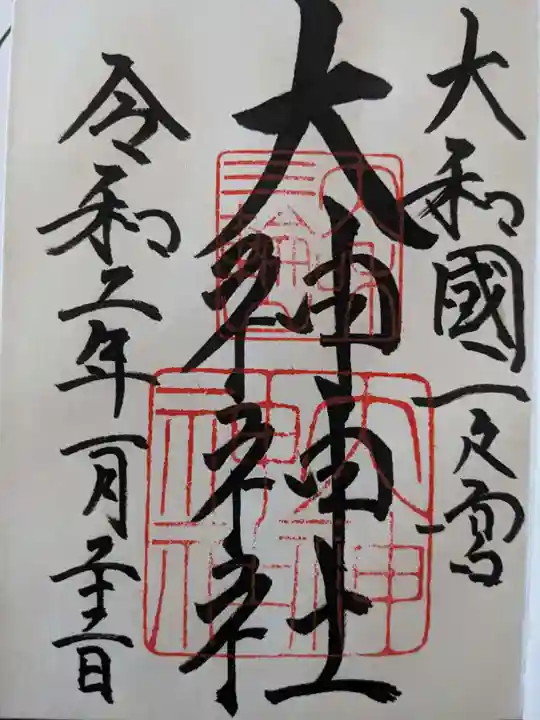 大和國一之宮
大神神社
令和二年一月